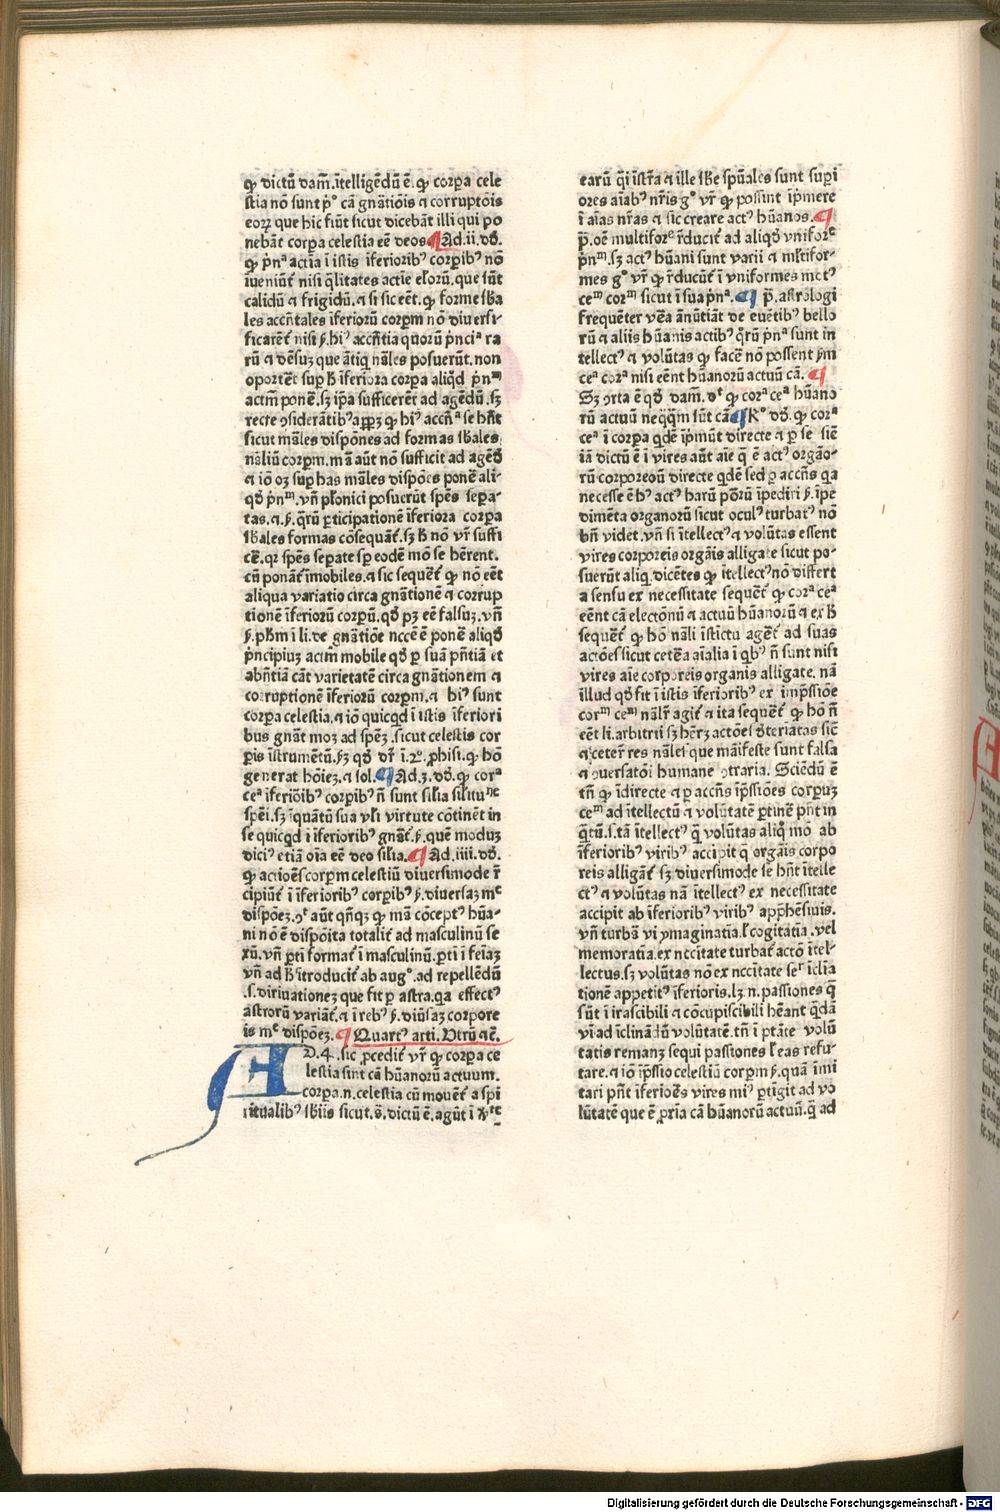 ꝙ dictū dam̄.ītelligēdū ē.ꝙ corꝑa cele
stia nō sunt pͦ cā gnātiōis ⁊ corruptōis
eoꝝ que hic fiūt sicut dicebāt illi qui po
nebāt corꝑa celestia eē deos ¶ Ad.ii.dō.
ꝙ pͥnᵃ actīa ī istis īferiorib⁹ corꝑib⁹ nō
īueniūt̄ nisi q̄litates actīe elōrū.que sūt
calidū ⁊ frigidū.⁊ si sic eēt.ꝙ forme sb̄a
les accn̄tales īferiorū corꝑm nō diuersi⸗
ficarēt̄ nisi ẜ.hi⁹ accn̄tia quorū pͥnciᵃ ra
rū ⁊ dēsuꝫ que ātiq̄ nāles posuerūt.non
oportēt̄ suꝑ h̄ īferiora corꝑa aliq̄d pͥnᵐ
actm̄ ponē.sꝫ ip̄a sufficerēt ad agēdū.sꝫ
recte ꝯsiderātib⁹ apꝑꝫ ꝙ hi⁹ accn̄ᵃ se hn̄t
sicut māles dispōnes ad formas sb̄ales
nāliū corꝑm.mā aūt nō sufficit ad agēd̄
⁊ iō oꝫ suꝑ has māles dispōes ponē ali⸗
qd̄ pͥnᵐ.vn̄ platonici posuerūt spēs seꝑa⸗
tas.⁊.ẜ.q̄rū ꝑticipationē īferiora corꝑa
sb̄ales formas cōsequāt̄.sꝫ h̄ nō vr̄ suffi
cē.qꝛ spēs seꝑate sꝑ eodē mō se hērent.
cū ponāt̄ īmobiles.⁊ sic sequēt̄ ꝙ nō eēt
aliqua variatio circa gnātionē ⁊ corrup
tionē īferiorū corꝑū.qd̄ pꝫ eē falsuꝫ.vn̄
ẜ.ph̄m ī li.de gnātiōe nccē ē ponē aliqd̄
pͥncipiuꝫ actm̄ mobile qd̄ ꝑ suā pn̄tiā et
abn̄tiā cāt varietatē circa gnātionem ⁊
corruptionē īferiorū corꝑm.⁊ hi⁹ sunt
corꝑa celestia.⁊ iō quicq̄d ī istis īferiori
bus gnāt moꝫ ad spēꝫ.sicut celestis cor
ꝑis īstrumētū.ẜꝫ qd̄ dr̄ ī.2ͦ.phisi.ꝙ hō
generat hōieꝫ.⁊ sol.¶ Ad.3.dō.ꝙ corᵃ
ceᵃ īferiōib⁹ corꝑib⁹ n̄ sunt sil̄ia sil̄ituⁿᵉ
spēi.sꝫ īquātū sua vl̄i virtute cōtinēt in
se quicq̄d ī īferiorib⁹ gnāt̄.ẜ.quē moduꝫ
dici⁹ etiā oīa eē deo sil̄ia.¶ Ad.iiii.dō.
ꝙ actioēs corꝑm celestiū diuersimode r̄
cipiūt̄ ī īferiorib⁹ corꝑib⁹ ẜ.diuersaꝫ mᵉ
dispōeꝫ.ꝯᵗ aūt qn̄qꝫ ꝙ mā cōcept⁹ hūa⸗
ni nō ē dispōita totalit̄ ad masculinū se
xū.vn̄ ꝑti format̄ ī masculinū.ꝑti ī feīaꝫ
vn̄ ad h̄ ītroducit̄ ab augͦ.ad repellēdū
.s.diuinationeꝫ que fit ꝑ astra.q̄a effect⁹
astrorū variāt̄.⁊ ī reb⁹ ẜ.diūsaꝫ corpore
is mᵉ dispōeꝫ.¶ Quart⁹ arti.Utrū ⁊ē.
AD.4.sic ꝓcedit̄ vr̄ ꝙ corꝑa ce
lestia sint cā hūanorū actuum.
corꝑa.n.celestia cū mouēt̄ a spi
ritualib⁹ sb̄iis sicut.s̄.dictū ē.agūt ī v̄ᵗᵉ
earū q̄i īstr̄a ⁊ ille sb̄e spūales sunt suꝑi
ores aīab⁹ nr̄is gͦ vr̄ ꝙ possint īpͥmere
ī aīas nr̄as ⁊ sic creare act⁹ hūanos.¶
p̄.oē multiforᵉ r̄ducit̄ ad aliqd̄ vniforᵉ
pͥnᵐ.sꝫ act⁹ hūani sunt varii ⁊ ml̄tifor⸗
mes gͦ vr̄ ꝙ r̄ducūt̄ ī vniformes mot⁹
ceᵐ corᵐ sicut ī sua pͥnᵃ.¶ p̄.astrologi
frequēter vēa ānūtiāt de euētib⁹ bello
rū ⁊ aliis hūanis actib⁹ q̄rū pͥnᵃ sunt in
tellect⁹ ⁊ volūtas ꝙ facē nō possent ẜm
ceᵃ corᵃ nisi eēnt hūanorū actuū cā.¶
Sꝫ ꝯrta ē qd̄ dam̄.dᵗ ꝙ corᵃ ceᵃ hūano
rū actuū neqq̄m sūt cā ¶ Rͦ dō.ꝙ corᵃ
ceᵃ ī corꝑa q̄dē īpͥmūt directe ⁊ ꝑ se sic̄
iā dictū ē ī vires aūt aīe q̄ ē act⁹ orgāo⸗
rū corporeoū directe q̄dē sed ꝑ accn̄s q̄a
necesse ē h⁹ act⁹ harū pōrū īpediri ẜ.īpe
dimēta organorū sicut ocul⁹ turbat⁹ nō
bn̄ videt.vn̄ si ītellect⁹ ⁊ volūtas essent
vires corporeis orgāis alligate sicut po⸗
suerūt aliqi.dicētes ꝙ ītellect⁹ nō differt
a sensu ex necessitate sequēt̄ ꝙ corᵃ ceᵃ
eēnt cā electōnū ⁊ actuū hūanorū ⁊ ex h̄
sequēt̄ ꝙ hō nāli īstictu agēt̄ ad suas
actōes sicut cetēa aīalia ī qͥb⁹ n̄ sunt nisi
vires aīe corporeis organis alligate.nā
illud qd̄ fit ī istis īferiorib⁹ ex īmp̄ssiōe
corᵐ ceᵐ nālr̄ agit̄ ⁊ ita sequēt̄ ꝙ hō n̄
eēt li.arbitrii sꝫ hērꝫ actōes d̄teriatas sic̄
⁊ ceter̄ res nāles que māifeste sunt falsa
⁊ ꝯuersatōi humane ꝯtraria. Sciēdū ē
tn̄ ꝙ īdirecte ⁊ ꝑ accn̄s īp̄ssiōes corpuꝫ
ceᵐ ad ītellectū ⁊ volūtatē ꝑtinē pn̄t in
q̄tū.s.tā ītellect⁹ q̄ volūtas aliq̄ mō ab
īferiorib⁹ virib⁹ accipit q̄ orgāis corpo
reis alligāt̄ sꝫ diuersimode se hn̄t ītelle
ct⁹ ⁊ volūtas nā ītellect⁹ ex necessitate
accipit ab īferiorib⁹ virib⁹ appͥhēsiuis.
vn̄ turbā vi ymaginatīa.ł cogitatīa.vel
memoratīa.ex nccītate turbat̄ actō ītel⸗
lectus.sꝫ volūtas nō ex nccītate seʳ īclīa
tionē appetit⁹ īferioris.lꝫ.n.passiones q̄
sūt ī irascibili ⁊ cōcupiscibili hēant q̄dā
vī ad īclinādū volūtatē.tn̄ ī ptāte volū
tatis remanꝫ sequi passiones ł eas refu⸗
tare.⁊ iō īp̄ssio celestiū corꝑm ẜ.quā īmi
tari pn̄t īferiōes vires mi⁹ ꝑtīgit ad vo
lūtatē que ē ꝓria cā hūanorū actuū.q̄ ad
Digitalisierung gefördert durch die Deutsche Forschungsgemeinschaft - DFG